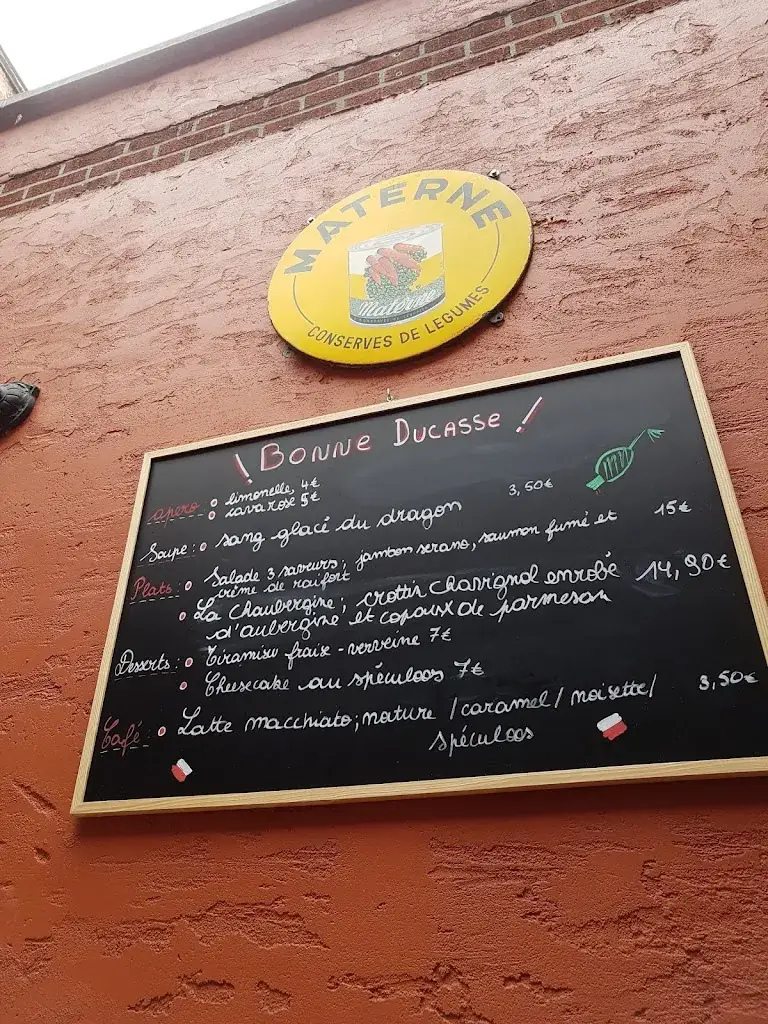 MATERNE
Materne
CONSERVES DE LEGUMES
! BONNE DUCASSE !
apero : limonelle, 4€
cava rosé 5€
Soupe : sang glacé du dragon 3,50€
Plats : Salade 3 saveurs ; jambon serano, saumon fumé et 15€
crème de raifort
La Chaubergine ; crottin Chavignol enrobé 14,90€
d'aubergine et copaux de parmesan
Desserts : Tiramisu fraise - verveine 7€
Cheesecake au spéculoos 7€
Café : Latte macchiato ; nature / caramel / noisette / 3,50€
spéculoos